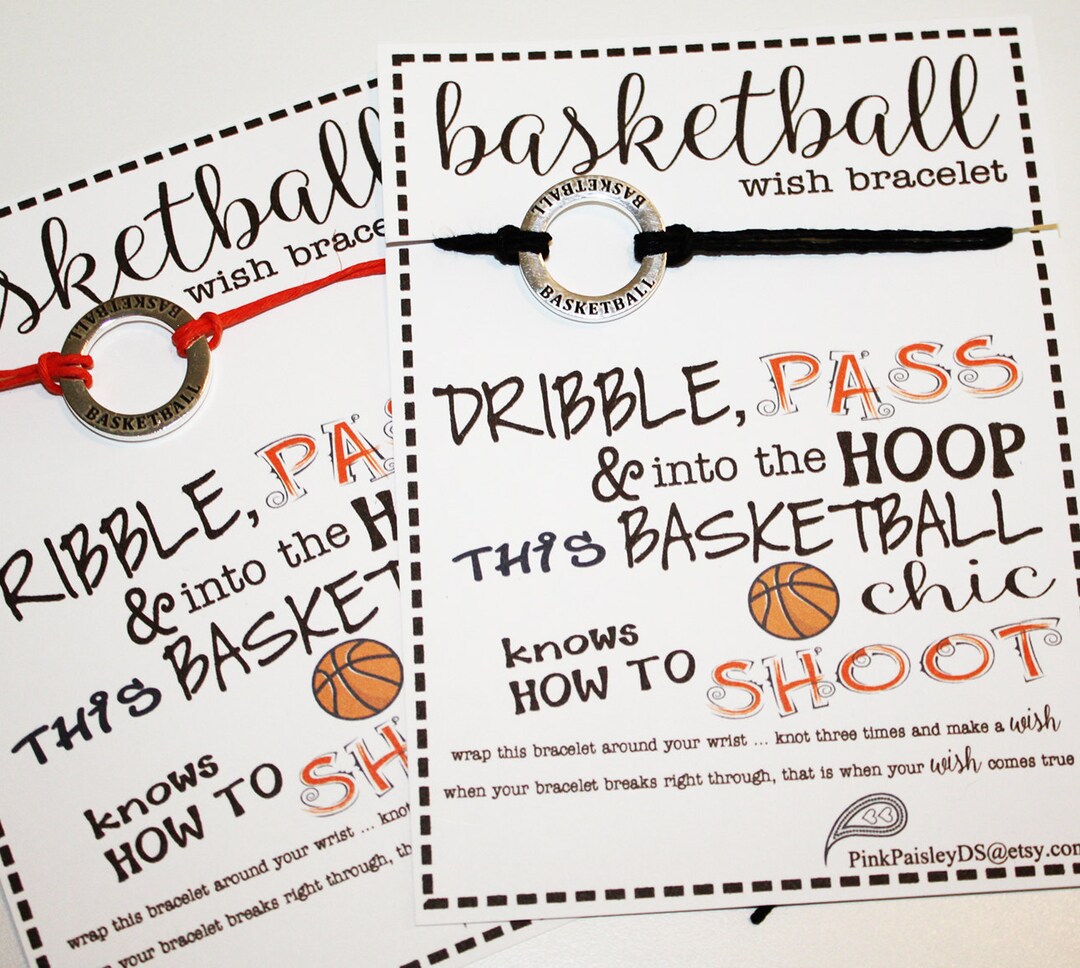 basketball
wish bracelet
BASKETBALL
BASKETBALL
DRIBBLE, PASS
& into the HOOP
THiS BASKETBALL
chic
knows
HOW TO SHOOT
wrap this bracelet around your wrist ... knot three times and make a wish
when your bracelet breaks right through, that is when your wish comes true
PinkPaisleyDS@etsy.com
sketball
wish brace
BASKETBALL
BASKETBALL
RIBBLE, PAS
& into the H
THiS BASKET
knows
HOW TO SH
wrap this bracelet around your wrist ... kno
your bracelet breaks right through, th